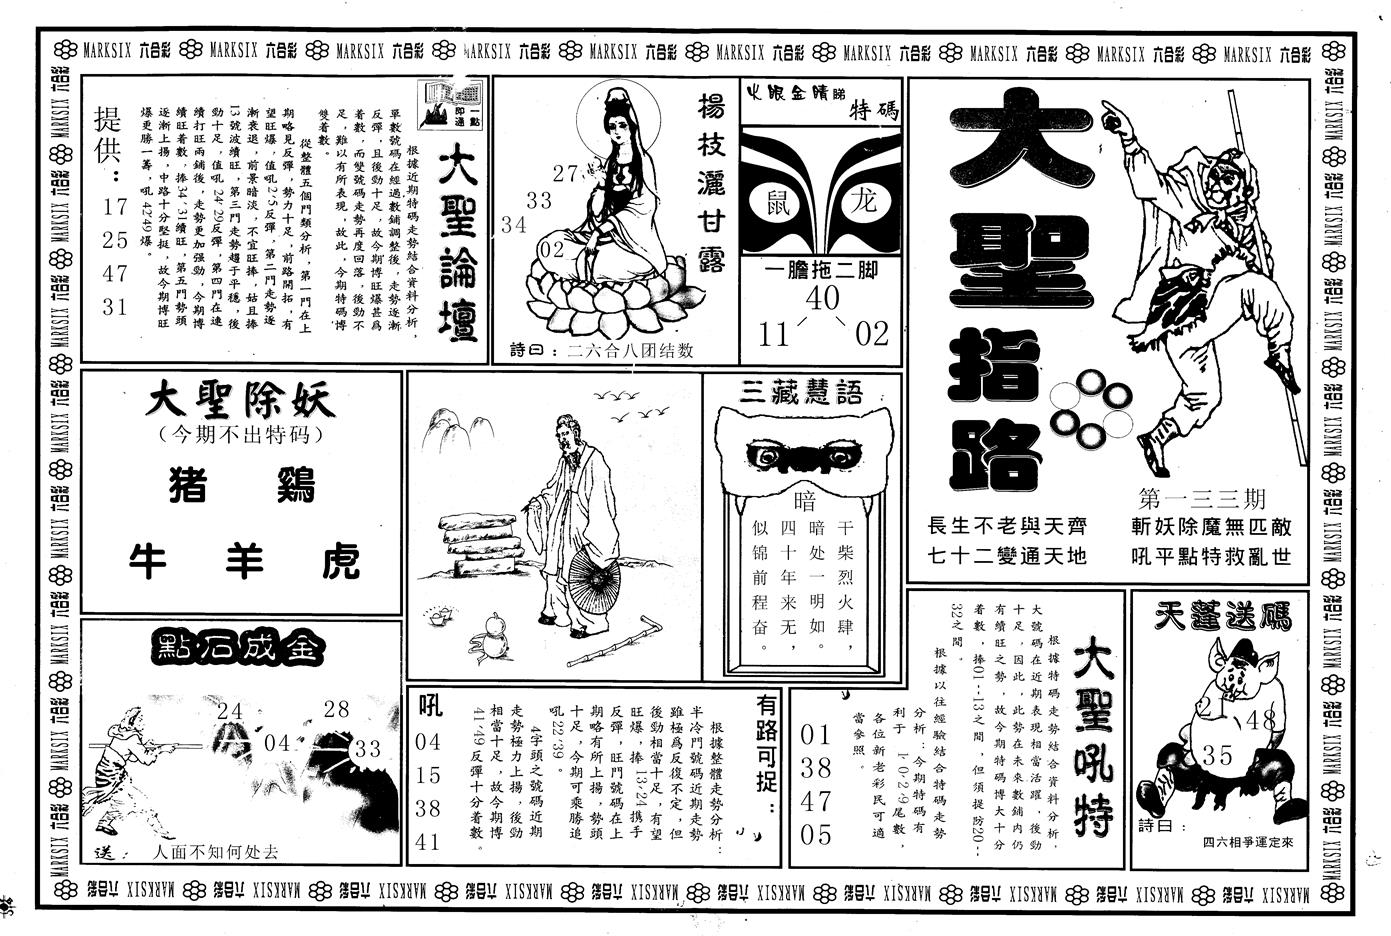 MARKSIX 六合彩 MARKSIX 六合彩 MARKSIX 六合彩 MARKSIX 六合彩 MARKSIX 六合彩 MARKSIX 六合彩 MARKSIX 六合彩 MARKSIX 六合彩 MARKSIX 六合彩 MARKSIX 六合彩
大聖指路
第一三三期
長生不老與天齊
七十二變通天地
斬妖除魔無匹敵
吼平點特救亂世
火眼金睛睇
特碼
鼠 龙
一膽拖二脚
40
11 02
楊枝灑甘露
27
33
34
02
詩曰：二六合八团结数
一點即通
大聖論壇
根據近期特碼走勢結合資料分析，
單數號碼在經過數鋪調整後，走勢逐漸
反彈，且後勁十足，故今期博旺爆甚爲
着數，而雙號碼走勢再度回落，後勁不
足，難以有所表現，故此，今期特碼博
雙着數。
從整體五個門類分析，第一門在上
期略見反彈，勢力十足，前路開拓，有
望旺爆，值吼2·5反彈，第二門走勢逐
漸衰退，前景暗淡，不宜旺捧，姑且捧
13號波續旺，第三門走勢趨于平穩，後
勁十足，值吼24·29反彈，第四門在連
續打旺兩鋪後，走勢更加强勁，今期博
續旺着數，捧34·31續旺，第五門勢頭
逐漸上揚，中路十分堅挺，故今期博旺
爆更勝一籌，吼42·49爆。
提供：
17
25
47
31
大聖除妖
（今期不出特码）
猪 鷄
牛 羊 虎
三藏慧語
暗
干柴烈火肆，
暗处一明如。
四十年来无，
似锦前程奋。
點石成金
24
28
04
33
送：人面不知何处去
有路可捉：
根據整體走勢分析：
半冷門號碼近期走勢
雖極爲反復不定，但
後勁相當十足，有望
旺爆，捧13·24携手
反彈，旺門號碼在上
期略有所上揚，勢頭
十足，今期可乘勝追
吼22·39。
4字頭之號碼近期
走勢極力上揚，後勁
相當十足，故今期博
41·49反彈十分着數。
吼
04
15
38
41
大聖吼特
根據特碼走勢結合資料分析，
大號碼在近期表現相當活躍，後勁
十足，因此，此勢在未來數鋪内仍
有續旺之勢，故今期特碼博大十分
着數，捧01--13之間，但須提防20--
32之間。
根據以往經驗結合特碼走勢
分析：今期特碼有
利于1·0·2·9尾數，
各位新老彩民可適
當參照。
01
38
47
05
天蓬送碼
48
35
詩曰：
四六相爭運定來